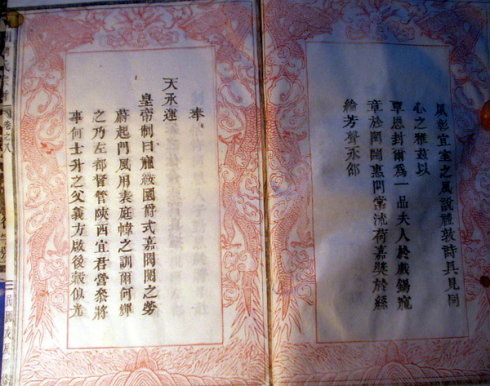 宜室之風說禮敦詩具見同
心之雅茲以
覃恩封爾為一品夫人於戲錫寵
章於閨闥惠問常流荷嘉獎於絲
綸芳聲永邵
奉
天承運
皇帝制曰寵綏國爵式嘉閥閱之勞
蔚起門風用表庭幃之訓爾何繹
之乃左都督管陝西宜君營參將
事何士升之父義方啟後穀似光